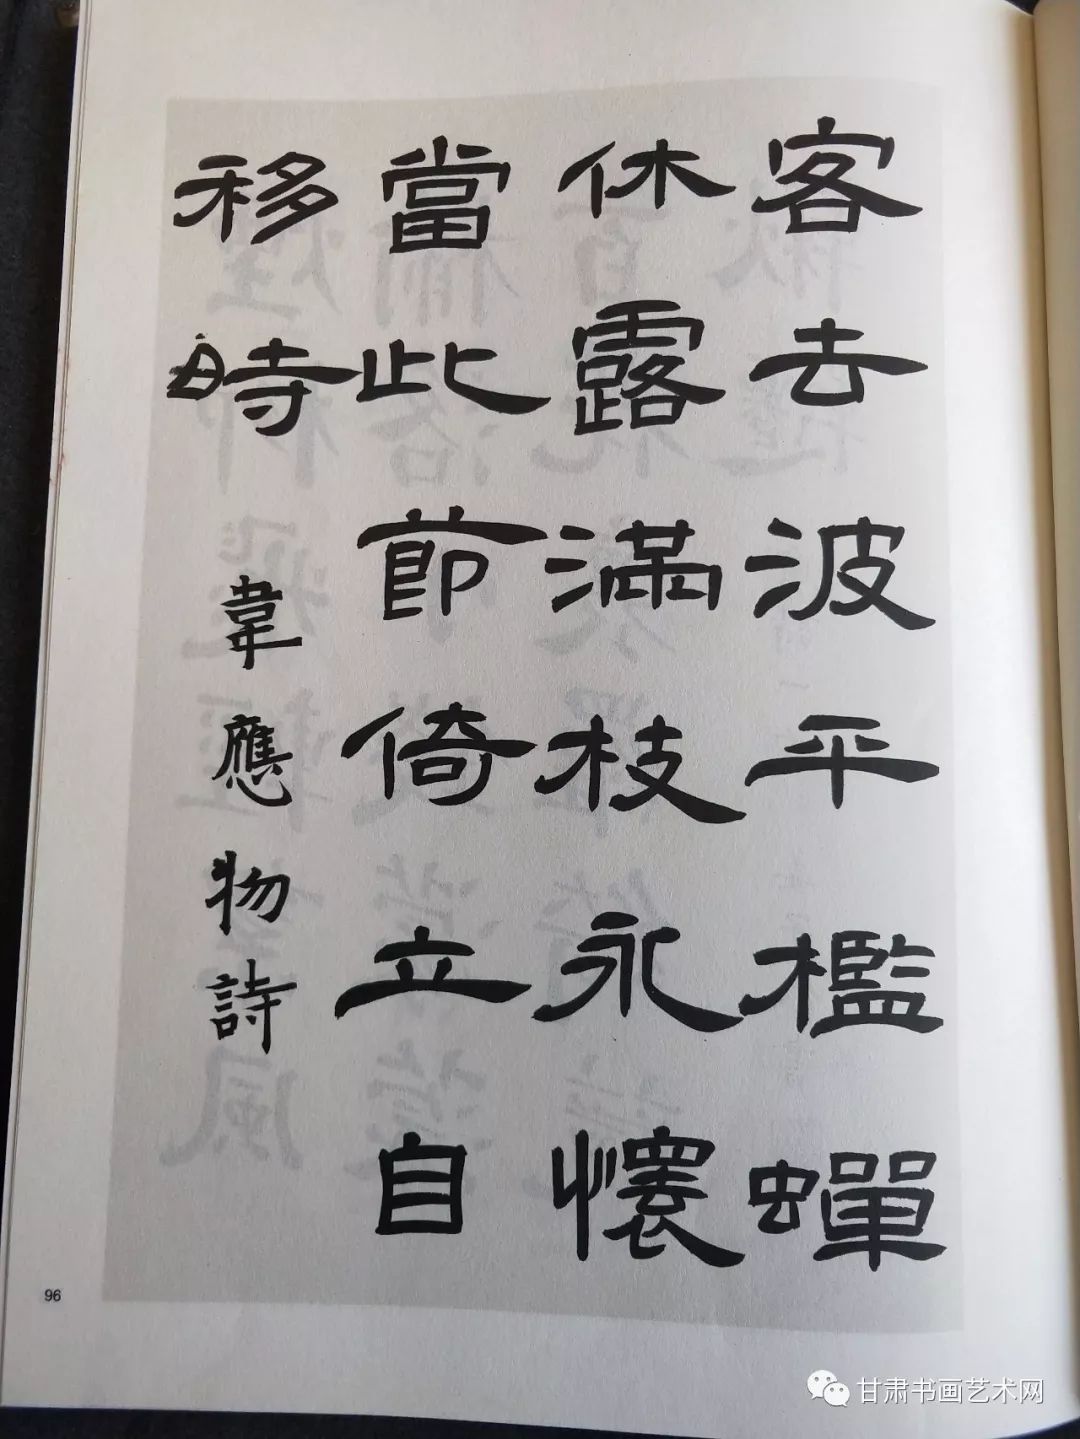 客去波平檻蟬
休露滿枝永懷
當此節倚立自
移時
韋應物詩
96
甘肃书画艺术网